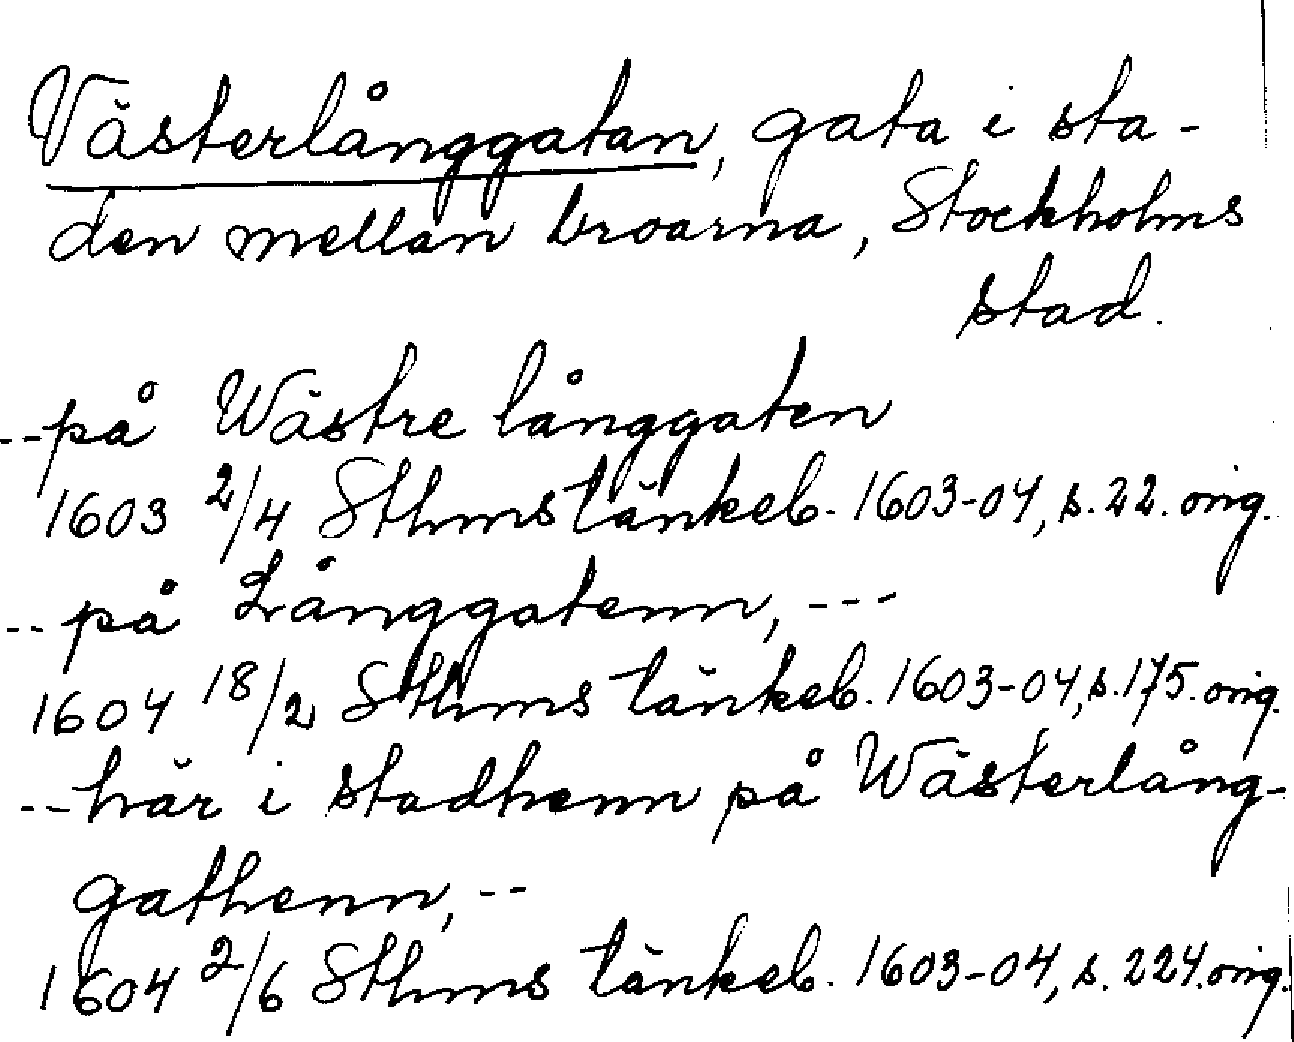 Västerlånggatan, gata i sta-
den mellan broarna, Stockholms
stad.
--på Wästre långgaten
1603 2/4 Sthms tänkeb. 1603-04, s. 22. orig.
--på Långgatenn, ---
1604 18/2 Sthms tänkeb. 1603-04, s. 175. orig.
--här i stadhenn på Wästerlång-
gathenn, --
1604 2/6 Sthms tänkeb. 1603-04, s. 224. orig.